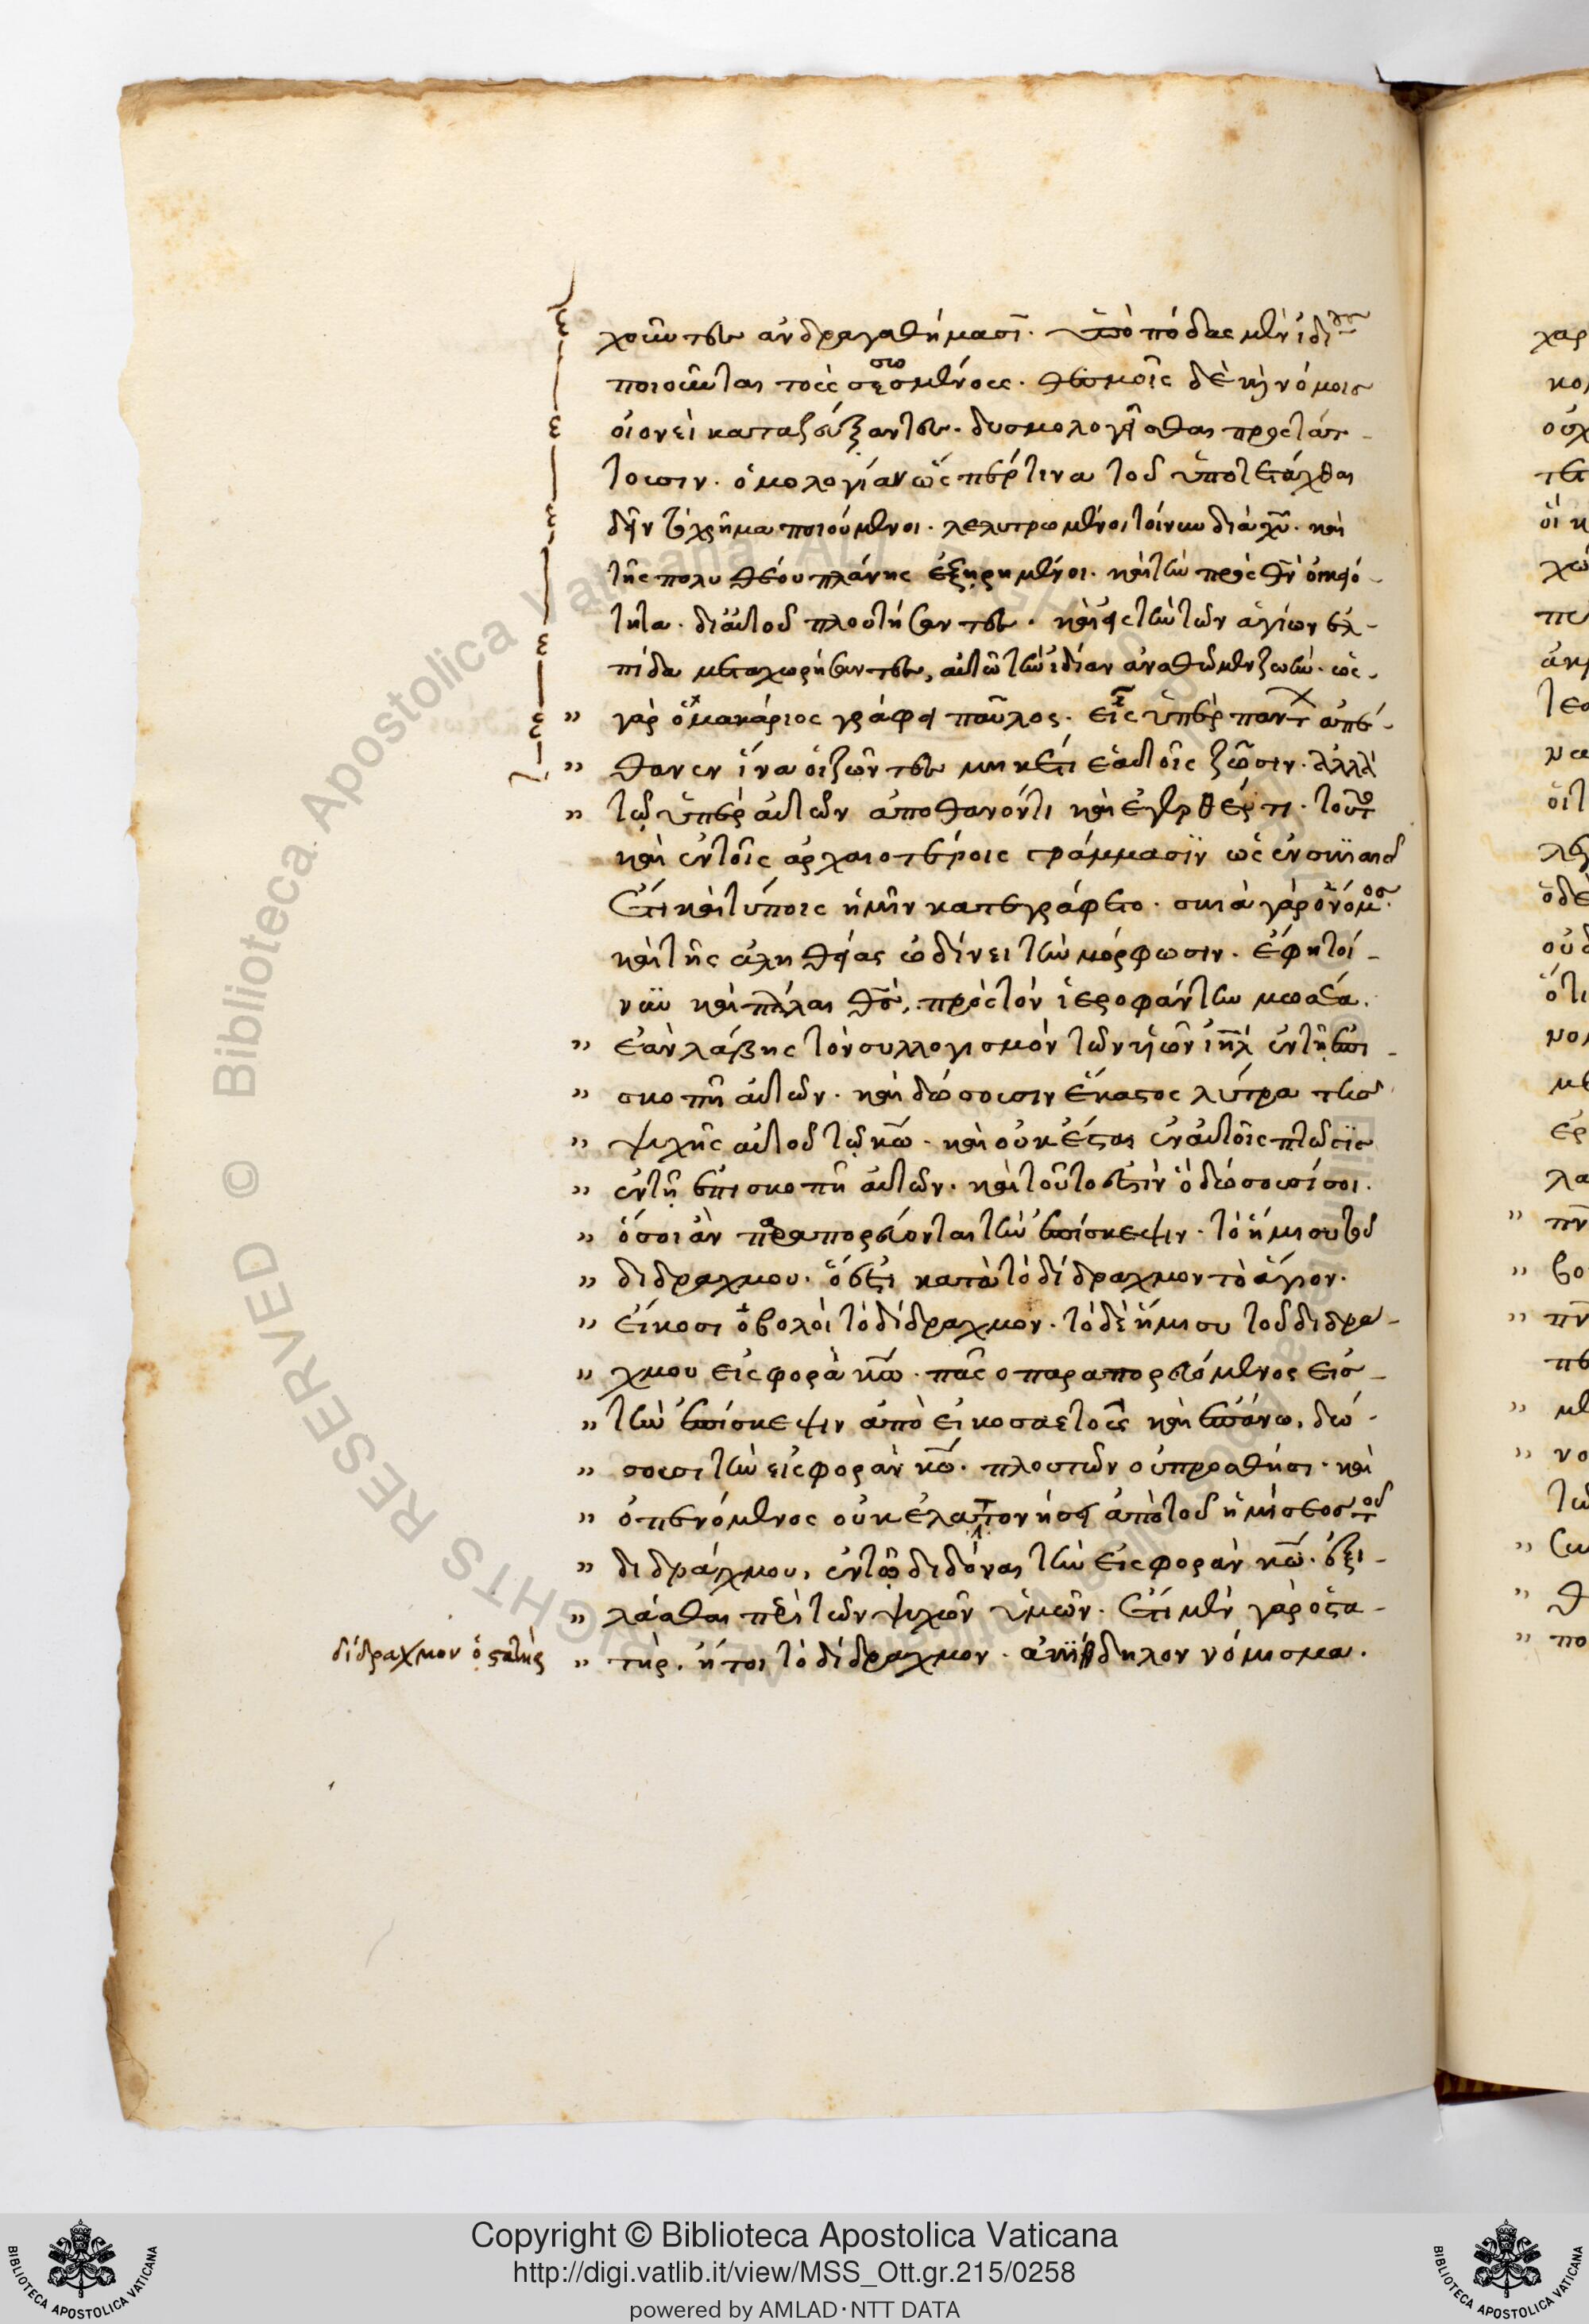 χοῦντες ἀνδραγαθήμασι. ὑπὸ πόδας μὲν ἰδί
ποιοῦνται τοὺς σεσωσμένους. θεσμοῖς δὲ καὶ νόμοις
οἱονεὶ καταζεύξαντες. δυσμολογεῖσθαι προστάτ-
τουσιν. ὁμολογίαν ὥσπέρ τινα τοῦ ὑποτετάχθαι
δεῖν τὸ χρῆμα ποιούμενοι. λελυτρωμένοι τοίνυν διὰ χῦ. καὶ
τῆς πολυθέου πλάνης ἐξῃρημένοι. καὶ τὴν πρὸς θν οἰκειό-
τητα. δι' αὐτοῦ πλουτήσαντες. καὶ εἰς τὴν τῶν ἁγίων ἐλ-
πίδα μεταχωρήσαντες, αὐτῷ τὴν ἰδίαν ἀναθῶμεν ζωήν. ὡς
" γὰρ ὁ μακάριος γράφει παῦλος. εἷς ὑπὲρ παντ ἀπέ-
" θανεν ἵνα οἱ ζῶντες μηκέτι ἑαυτοῖς ζῶσιν. ἀλλὰ
" τῷ ὑπὲρ αὐτῶν ἀποθανόντι καὶ ἐγερθέντι. τοῦτο
καὶ ἐν τοῖς ἀρχαιοτέροις γράμμασιν ὡς ἐν σκιαῖς
ἔτι καὶ τύποις ἡμῖν κατεγράφετο. σκιὰ γὰρ ὁ νόμος.
καὶ τῆς ἀληθείας ὠδίνει τὴν μόρφωσιν. ἔφη τοί-
νυν καὶ πάλαι θς, πρὸς τὸν ἱεροφάντην μωσέα.
" ἐὰν λάβῃς τὸν συλλογισμὸν τῶν υἱῶν ιηλ ἐν τῇ ἐπι-
" σκοπῇ αὐτῶν. καὶ δώσουσιν ἕκαστος λύτρα τῆς
" ψυχῆς αὐτοῦ τῷ κω. καὶ οὐκ ἔσται ἐν αὐτοῖς πτῶσις
" ἐν τῇ ἐπισκοπῇ αὐτῶν. καὶ τοῦτο ἐστὶν ὃ δώσουσί σοι.
" ὅσοι ἂν παραπορεύονται τὴν ἐπίσκεψιν. τὸ ἥμισυ τοῦ
" διδράχμου. ὅ ἐστι κατὰ τὸ δίδραχμον τὸ ἅγιον.
" εἴκοσι ὀβολοὶ τὸ δίδραχμον. τὸ δὲ ἥμισυ τοῦ διδρά-
" χμου εἰσφορὰ κω. πᾶς ὁ παραπορευόμενος εἰς
" τὴν ἐπίσκεψιν ἀπὸ εἰκοσαετοῦς καὶ ἐπάνω, δώ-
" σουσι τὴν εἰσφορὰν κω. πλουτῶν οὐ προσθήσει. καὶ
" ὁ πενόμενος οὐκ ἐλαττονήσει ἀπὸ τοῦ ἡμίσεος τοῦ
" διδράχμου, ἐν τῷ διδόναι τὴν εἰσφορὰν κω. ἐξι-
" λάσθαι περὶ τῶν ψυχῶν ὑμῶν. ἔτι μὲν γὰρ ὁ στα-
δίδραχμον ὁ στατὴρ " τὴρ. ἤτοι τὸ δίδραχμον. δηλον νόμισμα.